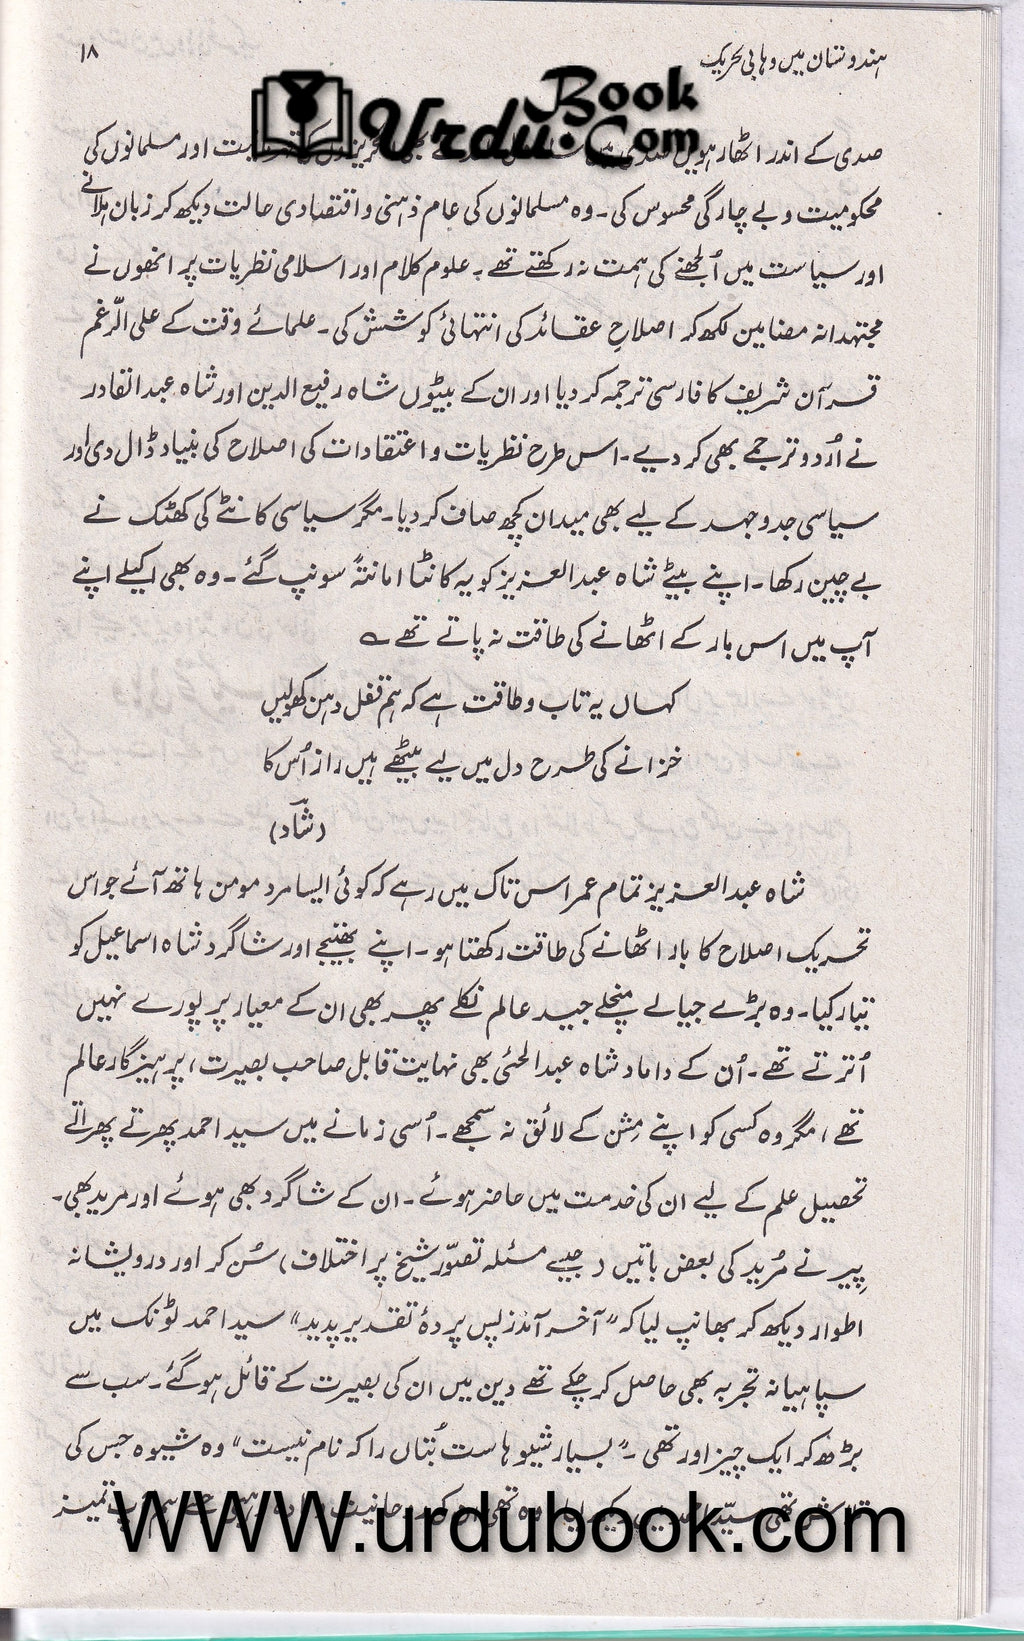 ہندوستان میں وہابی تحریک
۱۸
Urdu Book .Com
صدی کے اندر اٹھارہویں صدی میں اور مسلمانوں کی
محکومیت و بے چارگی محسوس کی۔ وہ مسلمانوں کی عام ذہنی و اقتصادی حالت دیکھ کر زبان ہلانے
اور سیاست میں اُلجھنے کی ہمت نہ رکھتے تھے۔ علوم کلام اور اسلامی نظریات پر انھوں نے
مجتہدانہ مضامین لکھ کر اصلاحِ عقائد کی انتہائی کوشش کی۔ علمائے وقت کے علی الرّغم
قرآن شریف کا فارسی ترجمہ کر دیا اور ان کے بیٹوں شاہ رفیع الدین اور شاہ عبدالقادر
نے اُردو ترجمے بھی کر دیے۔ اس طرح نظریات و اعتقادات کی اصلاح کی بنیاد ڈال دی اور
سیاسی جدوجہد کے لیے بھی میدان کچھ صاف کر دیا۔ مگر سیاسی کانٹے کی کھٹک نے
بے چین رکھا۔ اپنے بیٹے شاہ عبدالعزیز کو یہ کانٹا امانتہً سونپ گئے۔ وہ بھی اکیلے اپنے
آپ میں اس بار کے اٹھانے کی طاقت نہ پاتے تھے ؎
کہاں یہ تاب و طاقت ہے کہ ہم قفل دہن کھولیں
خزانے کی طرح دل میں لیے بیٹھے ہیں راز اُس کا
(شاد)
شاہ عبدالعزیز تمام عمر اس تاک میں رہے کہ کوئی ایسا مرد مومن ہاتھ آئے جو اس
تحریک اصلاح کا بار اٹھانے کی طاقت رکھتا ہو۔ اپنے بھتیجے اور شاگرد شاہ اسماعیل کو
تیار کیا۔ وہ بڑے جیالے منچلے جید عالم نکلے پھر بھی ان کے معیار پر پورے نہیں
اُترتے تھے۔ اُن کے داماد شاہ عبدالحئی بھی نہایت قابل صاحب بصیرت، پرہیزگار عالم
تھے، مگر وہ کسی کو اپنے مِشن کے لائق نہ سمجھے۔ اُسی زمانے میں سید احمد پھرتے پھراتے
تحصیل علم کے لیے ان کی خدمت میں حاضر ہوئے۔ ان کے شاگرد بھی ہوئے اور مرید بھی۔
پِیر نے مُرید کی بعض باتیں (جیسے مسئلہ تصوّرِ شیخ پر اختلاف) سُن کر اور درویشانہ
اطوار دیکھ کر بھانپ لیا کہ "آخر آمد ز پس پردۂ تقدیر پدید" سید احمد ٹونک میں
سپاہیانہ تجربہ بھی حاصل کر چکے تھے دین میں ان کی بصیرت کے قائل ہو گئے۔ سب سے
بڑھ کر ایک چیز اور تھی۔ "بسیار شیوہاست بُتاں را کہ نام نیست" وہ شیوہ جس کی
تمیز
WWW.urdubook.com